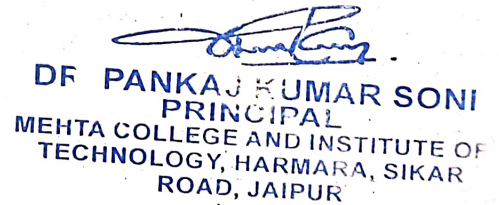 DR PANKAJ KUMAR SONI
PRINCIPAL
MEHTA COLLEGE AND INSTITUTE OF
TECHNOLOGY, HARMARA, SIKAR
ROAD, JAIPUR